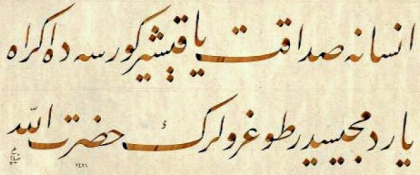 انسانه صداقت یاقیشیر كورسه ده اكراه
یاردمجیسیدر طوغرولرڭ حضرت الله